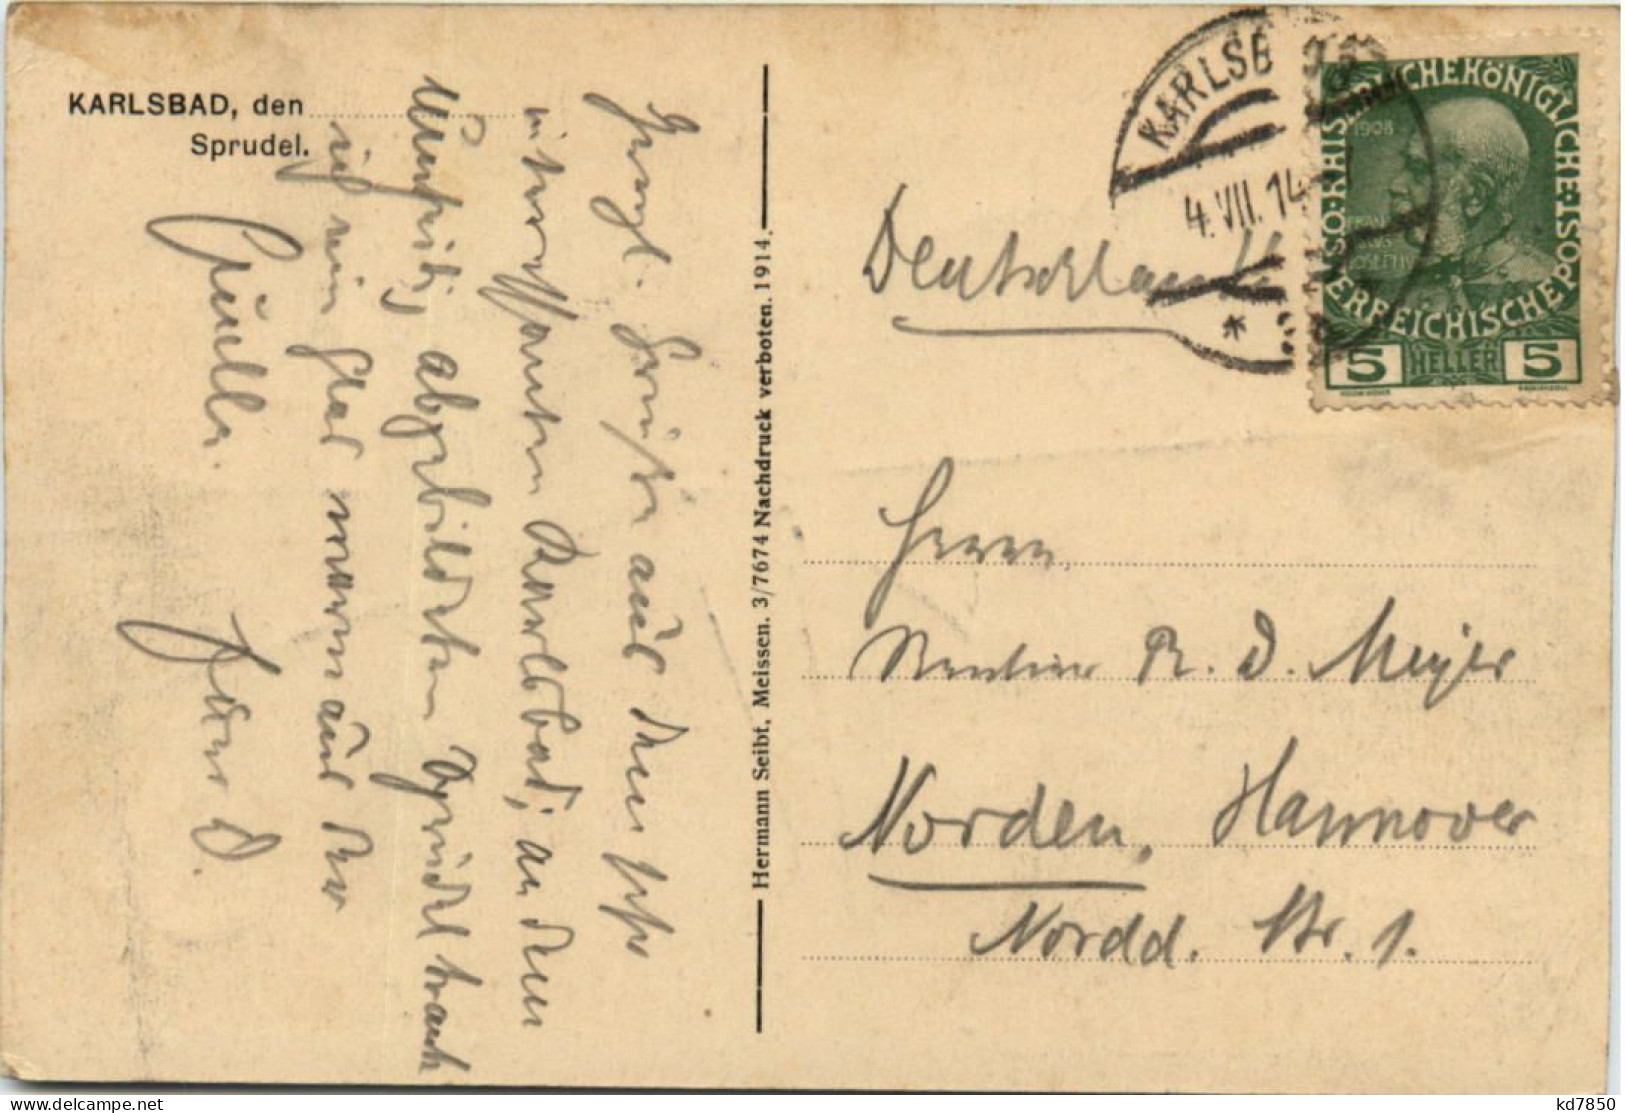 KARLSBAD, den
Sprudel.
Herzl. Grüße aus dem sehr
interessanten Karlsbad; an dem
abgebildeten Sprudel trank
ich ein Glas warm aus der
Quelle.
D.
Hermann Seibt, Meissen. 3/7674 Nachdruck verboten. 1914.
KARLSB
4.VII.14
KAISERLICHE KÖNIGLICHE ÖSTERREICHISCHE POST
1908
5 HELLER 5
Deutschland
Herrn
Rentier R. D. Meyer
Norden, Hannover
Nordd. Str. 1.
kd7850